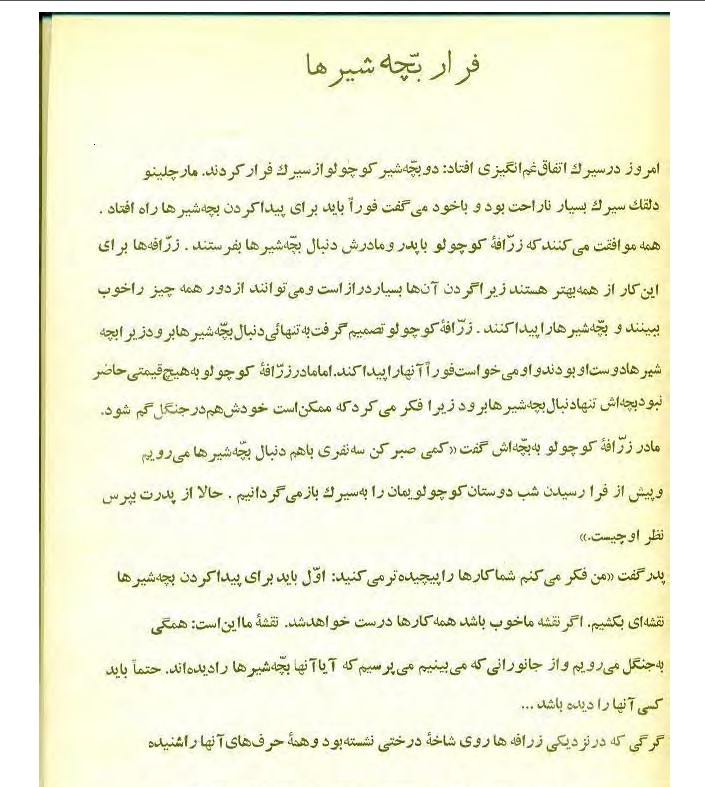 فرار بچّه شیرها
امروز در سیرك اتفاق غم‌انگیزی افتاد: دو بچّه شیر کوچولو از سیرك فرار کردند. مارچلینو
دلقك سیرك بسیار ناراحت بود و باخود می‌گفت فوراً باید برای پیدا کردن بچه‌شیرها راه افتاد .
همه موافقت می‌کنند که زرّافهٔ کوچولو با پدر و مادرش دنبال بچّه‌شیرها بفرستند . زرّافه‌ها برای
این کار از همه بهتر هستند زیرا گردن آن‌ها بسیار دراز است و می‌توانند از دور همه چیز را خوب
ببینند و بچّه‌شیرها را پیدا کنند . زرّافهٔ کوچولو تصمیم گرفت به تنهائی دنبال بچّه‌شیرها برود زیرا بچه
شیرها دوست او بودند و او می‌خواست فوراً آنها را پیدا کند. اما مادر زرّافهٔ کوچولو به هیچ قیمتی حاضر
نبود بچه‌اش تنها دنبال بچه‌شیرها برود زیرا فکر می‌کرد که ممکن است خودش هم در جنگل گم شود.
مادر زرّافهٔ کوچولو به بچّه‌اش گفت «کمی صبر کن سه نفری باهم دنبال بچّه‌شیرها می‌رویم
و پیش از فرا رسیدن شب دوستان کوچولویمان را به سیرك باز می‌گردانیم . حالا از پدرت بپرس
نظر او چیست.»
پدر گفت «من فکر می‌کنم شما کارها را پیچیده‌تر می‌کنید: اوّل باید برای پیدا کردن بچه‌شیرها
نقشه‌ای بکشیم. اگر نقشه ما خوب باشد همه کارها درست خواهد شد. نقشهٔ ما این است: همگی
به جنگل می‌رویم و از جانورانی که می‌بینیم می‌پرسیم که آیا آنها بچّه‌شیرها را دیده‌اند. حتماً باید
کسی آنها را دیده باشد ...
گرگی که در نزدیکی زرافه ها روی شاخهٔ درختی نشسته بود و همهٔ حرف‌های آنها را شنیده